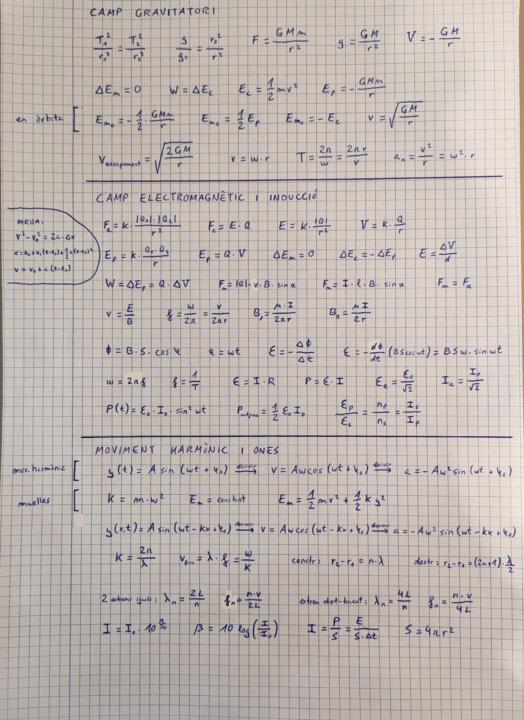 CAMP GRAVITATORI
T₁²/r₁³ = T₂²/r₂³   g/g₀ = r₀²/r²   F = GMm/r²   g = GM/r²   V = -GM/r
ΔEm = 0   W = ΔEc   Ec = 1/2 mv²   Ep = -GMm/r
en òrbita [ Em₀ = -1/2 · GMm/r   Em₀ = 1/2 Ep   Em₀ = -Ec   v = √(GM/r)
Vescapament = √(2GM/r)   v = w·r   T = 2π/w = 2πr/v   an = v²/r = w²·r
CAMP ELECTROMAGNÈTIC I INDUCCIÓ
MRUA:
v² - v₀² = 2a·Δx
x = x₀ + v₀(t-t₀) + 1/2 a(t-t₀)²
v = v₀ + a(t-t₀)
Fe = K · |Q₁|·|Q₂|/r²   Fe = E·Q   E = K · |Q|/r²   V = K · Q/r
Ep = K · Q₁ Q₂/r   Ep = Q·V   ΔEm = 0   ΔEc = -ΔEp   E = ΔV/d
W = ΔEp = Q·ΔV   Fm = |Q|·v·B·sin α   Fm = I·l·B·sin α   Fm = Fe
v = E/B   f = w/2π = v/2πr   B₁ = μ·I/2πr   B₀ = μI/2r
ϕ = B·S·cos φ   φ = wt   Ɛ = -Δϕ/Δt   Ɛ = -dϕ/dt (BScoswt) = BSw·sin wt
w = 2πf   f = 1/T   Ɛ = I·R   P = Ɛ·I   Ɛe = Ɛ₀/√2   Ie = I₀/√2
P(t) = Ɛ₀·I₀·sin² wt   = 1/2 Ɛ₀I₀   Ɛp/Ɛs = np/ns = Is/Ip
MOVIMENT HARMÒNIC I ONES
mov. harmònic [ y(t) = A sin (wt + φ₀) derivar→ v = Aw cos (wt + φ₀) derivar→ a = -Aw² sin (wt + φ₀)
muelles [ K = m·w²   Em = constant   Em = 1/2 mv² + 1/2 Ky²
y(x,t) = A sin (wt - kx + φ₀) derivar→ v = Aw cos (wt - kx + φ₀) derivar→ a = -Aw² sin (wt - kx + φ₀)
K = 2π/λ   = λ·f = w/K   constr: r₂-r₁ = n·λ   destr: r₂-r₁ = (2n+1)·λ/2
2 extrems iguals: λn = 2L/n   fn = n·v/2L   extrem obert-tancat: λn = 4L/n   fn = n·v/4L
I = I₀·10^(β/10)   β = 10 log(I/I₀)   I = P/S = E/S·Δt   S = 4πr²